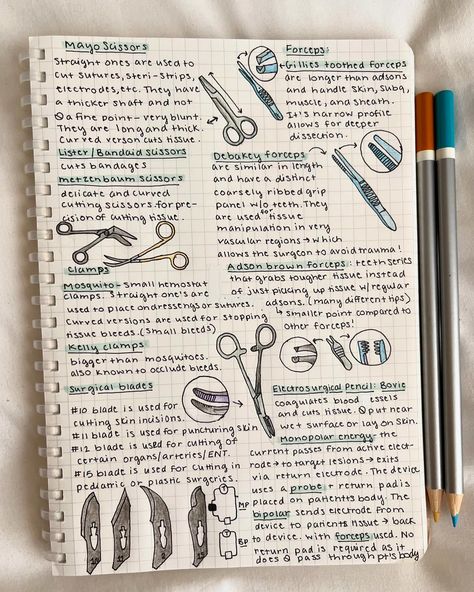 Mayo Scissors
Straight ones are used to
cut sutures, steri-strips,
electrodes, etc. They have
a thicker shaft and not
a fine point - very blunt.
They are long and thick.
Curved verson cuts tissue.
Lister/Bandaid scissors
cuts bandages
Metzenbaum scissors
delicate and curved
cutting scissors for pre-
cision of cutting tissue.
Clamps
Mosquito - Small hemostat
clamps. Straight one's are
used to place on dressings or sutures.
Curved versions are used for stopping
tissue bleeds. (small bleeds)
Kelly clamps
bigger than mosquitoes.
also known to occlude bleeds.
Surgical blades
#10 blade is used for
cutting skin incisions.
#11 blade is used for puncturing skin
#12 blade is used for cutting of
certain organs/arteries/ENT.
#15 blade is used for cutting in
pediatric or plastic surgeries.
10
11
12
15
MP
BP
Forceps:
Gillies toothed forceps
are longer than adsons
and handle skin, subq,
muscle, and sheath.
It's narrow profile
allows for deeper
dissection.
Debakey forceps
are similar in length
and have a distinct
coarsely ribbed grip
panel w/o teeth. They
are used for tissue
manipulation in very
vascular regions → which
allows the surgeon to avoid trauma!
Adson brown forceps: teeth series
that grabs tougher tissue instead
of just picking up tissue w/ regular
adsons. (many different tips)
↳ smaller point compared to
other forceps!
Electrosurgical Pencil: Bovie
coagulates blood essels
and cuts tissue. Ø put near
wet surface or lay on skin.
Monopolar energy - the
current passes from active elect-
rode → to target lesions → exits
via return electrode. The device
uses a probe + return pad is
placed on patients body. The
bipolar sends electrode from
device to patients tissue → back
to device. with forceps used. No
return pad is required as it
does Ø pass through pt's body